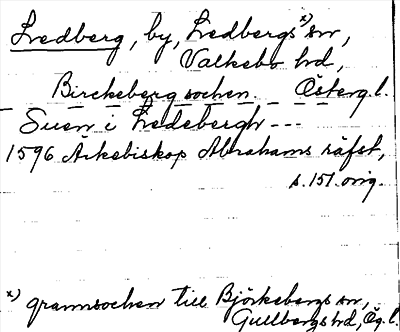 Ledberg, by, Ledbergs x) sn,
Valkebo hd,
Birckeberg sochen. Österg.l.
Suen i Ledebergh ---
1596 Ärkebiskop Abrahams räfst,
s. 151. orig.
x) grannsochen till Björkebergs sn,
Gullbergs hd, Ög.l.